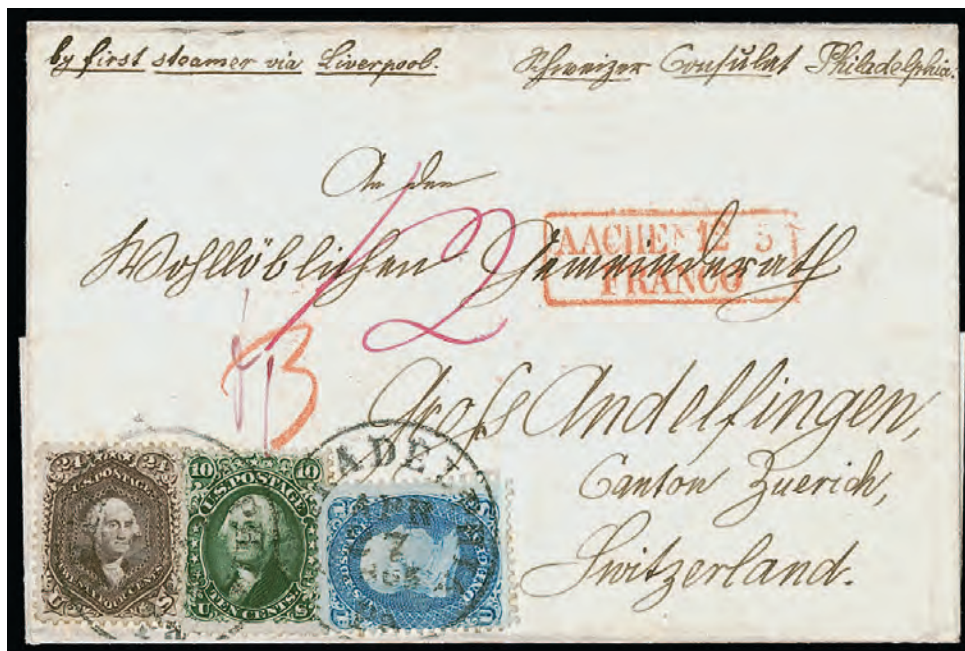 by first steamer via Liverpool.
Schweizer Consulat Philadelphia.
An den
Wohllöblichen Gemeinderath
AACHEN 12 5
FRANCO
12
3
Gross Andelfingen,
Canton Zuerich,
Switzerland.
24 24
U.S. POSTAGE
U S
10 10
U.S. POSTAGE
TEN CENTS.
U S
ADE
7
PA